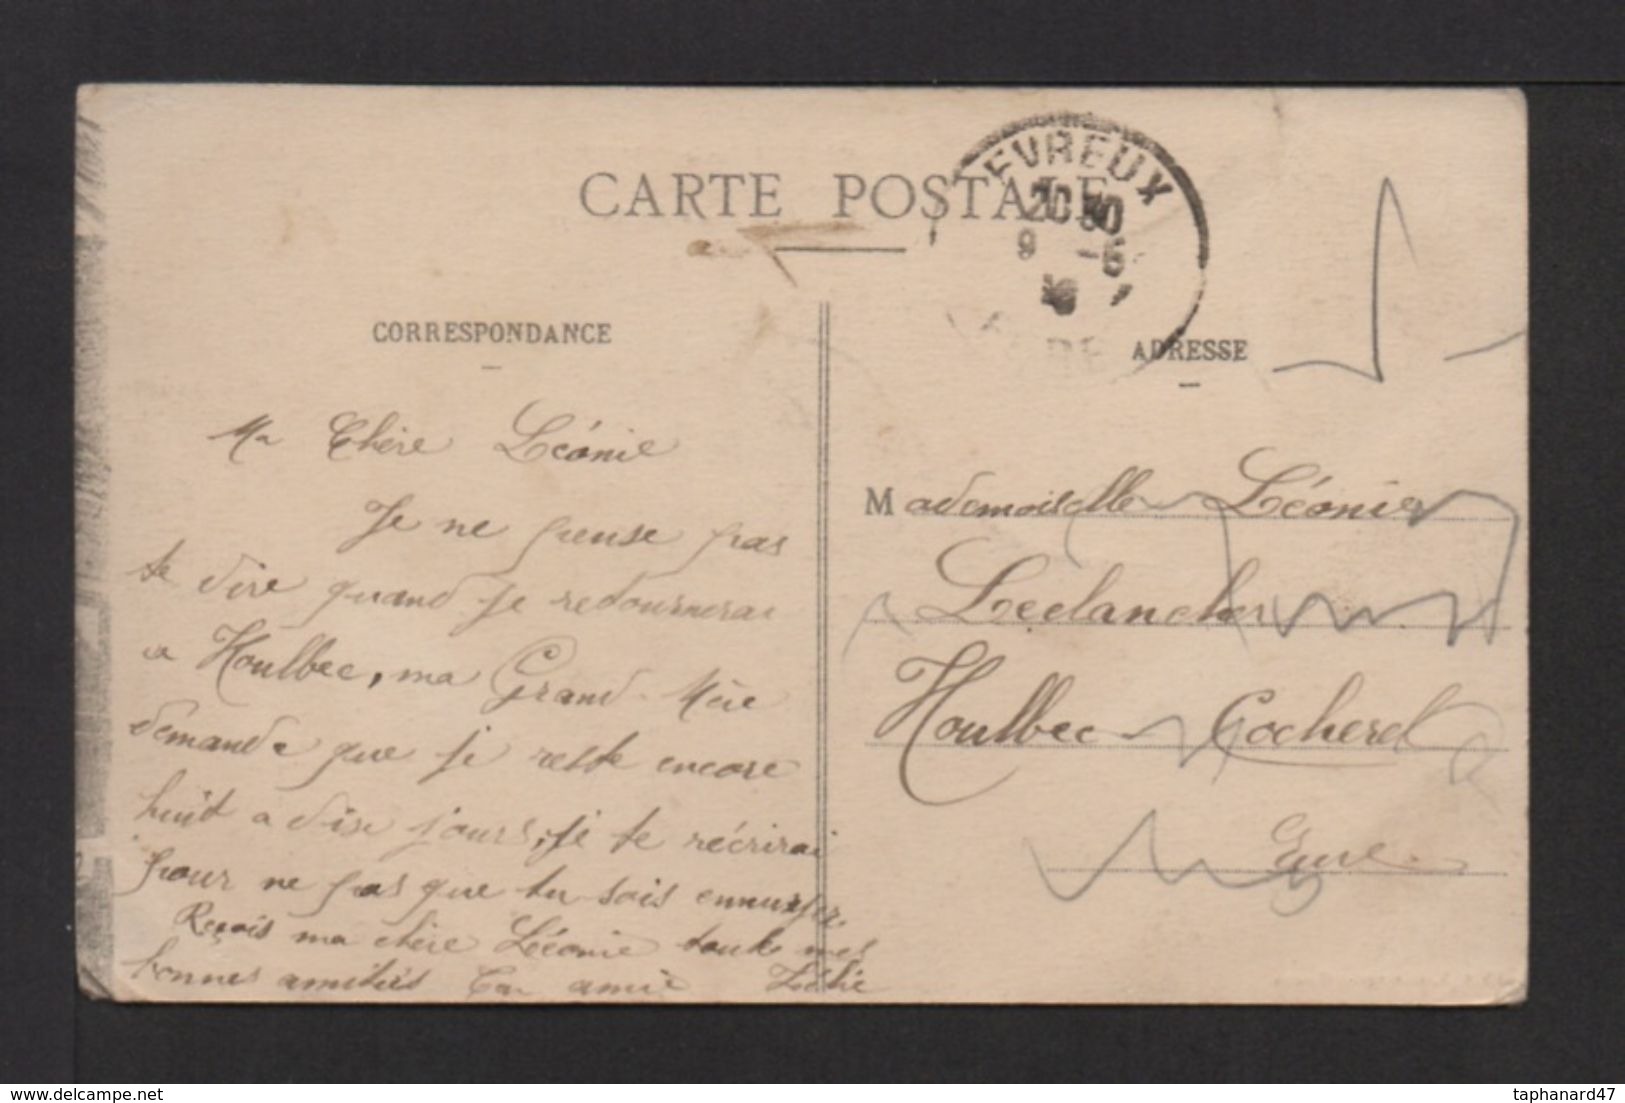 CARTE POSTALE
EVREUX
20 30
9 -5
CORRESPONDANCE
ADRESSE
Ma Chère Léonie
Je ne pense pas
te dire quand je retournerai
a Houlbec, ma Grand-Mère
demande que je reste encore
huit a dix jours, je te récrirai
pour ne pas que tu sois ennuyer
Reçois ma chère Léonie toute mes
bonnes amitiés Ton amie
Mademoiselle Léonie
Leclancher
Houlbec Cocherel
Eure
taphanard47